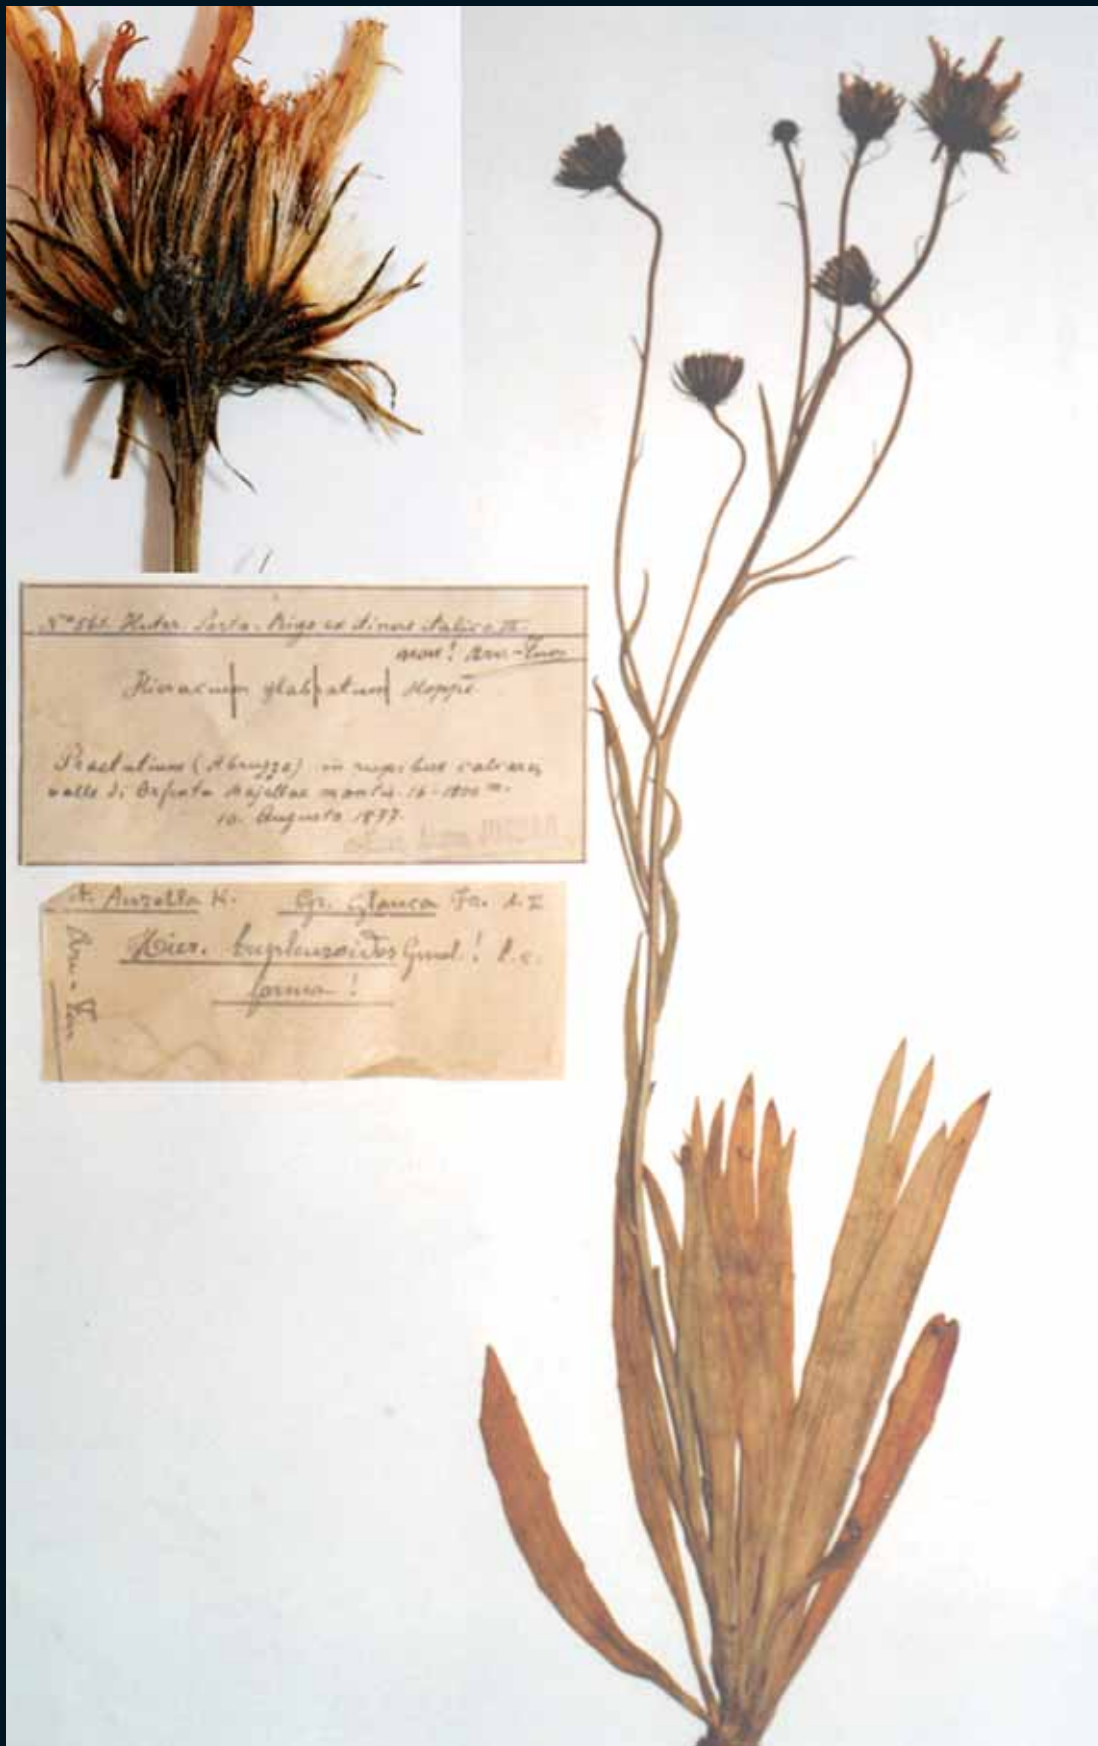 Huter. Porta. Rigo ex itinere italico III.
non! Arv-Touv
Hieracium glabratum Hoppe
(Abruzzo) in rupibus calcareis
valle di Orfenta Majellae montis. 16-1800 m.
10. Augusto 1877.
A. Aurella K. Gr. Glauca Fr. 
Hier. bupleuroides Gmel.! l. c.
forma!
Arv-Touv